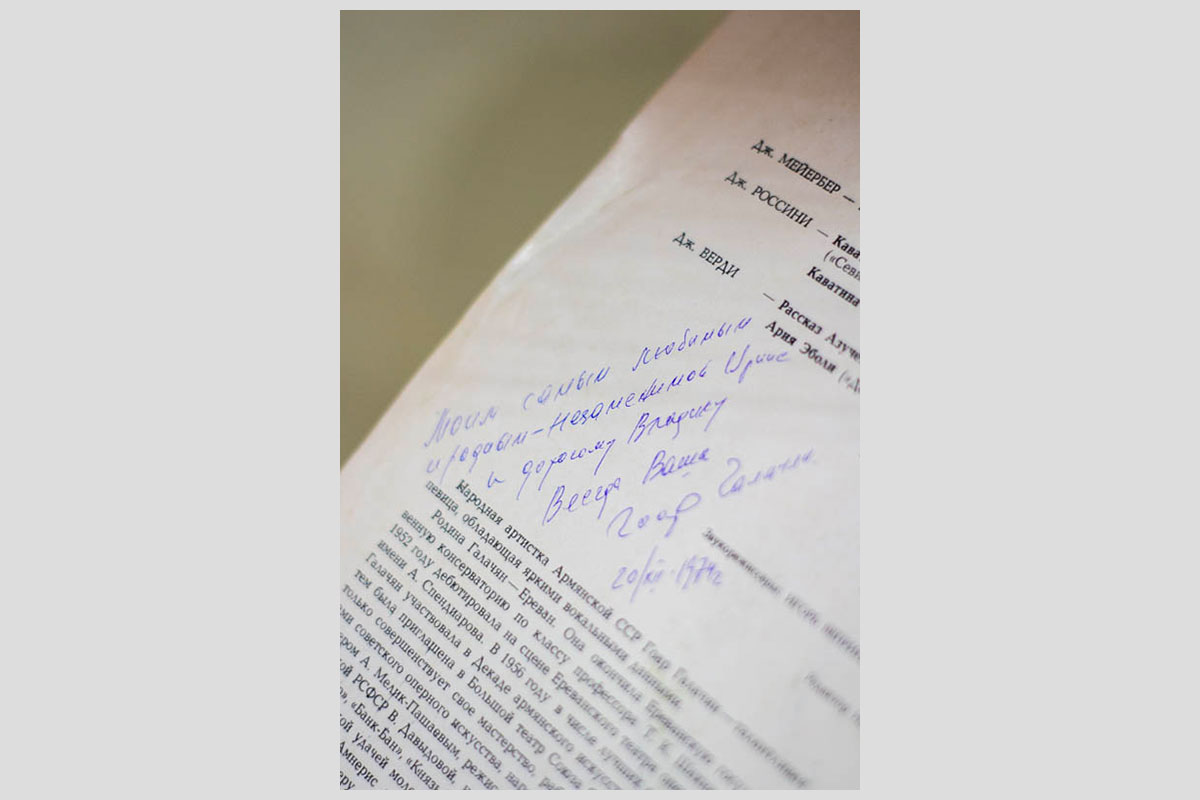 Дж. МЕЙЕРБЕР —
Дж. РОССИНИ — Кава
(«Севи
Каватина
Дж. ВЕРДИ
— Рассказ Азуче
Ария Эболи («Д
Моим самым любимым
и родным – Незаменимой Ирине
и дорогому Владику
Всегда Ваша
Гоар Галачян.
20/XII-1974г
Звукорежиссер
Народная артистка Армянской ССР Гоар Галачян —
певица, обладающая яркими вокальными данными.
Родина Галачян — Ереван. Она окончила Ереванскую
венную консерваторию по классу профессора Т. К.
1952 году дебютировала на сцене Ереванского театра
имени А. Спендиарова. В 1956 году в числе лучших
Галачян участвовала в Декаде армянского искусс
тем была приглашена в Большой театр Союза
только совершенствует свое мастерство, раб
ми советского оперного искусства, нар
ром А. Мелик-Пашаевым, режис
ой РСФСР В. Давыдовой,
», «Банк-Бан», «Князь
ой удачей моло
Амнерис